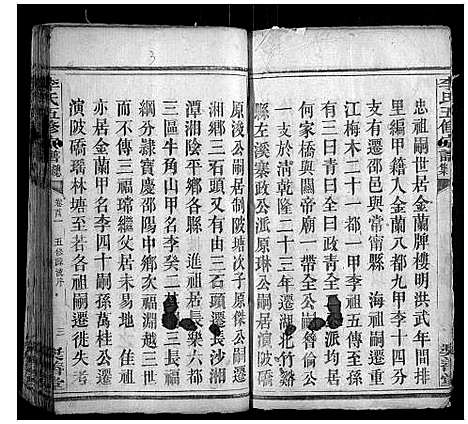 李氏五修
譜
忠祖公嗣世居金蘭牌樓明洪武年間排
里編甲籍入金蘭八都九甲李十四分
支有遷邵邑與常寧者 海祖嗣遷重
江梅本二十一都一甲李祖五傳至余
有三曰青曰全曰政青全 派均居
何家橋與關帝廟一帶 瓚倫公
一支於清乾隆二十三年遷湖北竹谿
縣左溪寨政公派原琳公嗣居演陂橋
原淩公嗣制陂塘次子原傑公嗣遷
湘鄉三石頭又有由三石頭遷長沙湘
潭湘陰平鄉各縣 進祖居長樂六都
三區牛角山甲名李癸二 三長福
綱分隸寶慶邵陽中鄉次福淵越三世
而不傳三福瓃繼父居未易地 佳祖
亦居金蘭甲名李四十嗣孫萬桂公遷
演陂橋瑞林塘至若各祖嗣遷徙失考
李氏五修
譜
卷首一
五修源流序
三